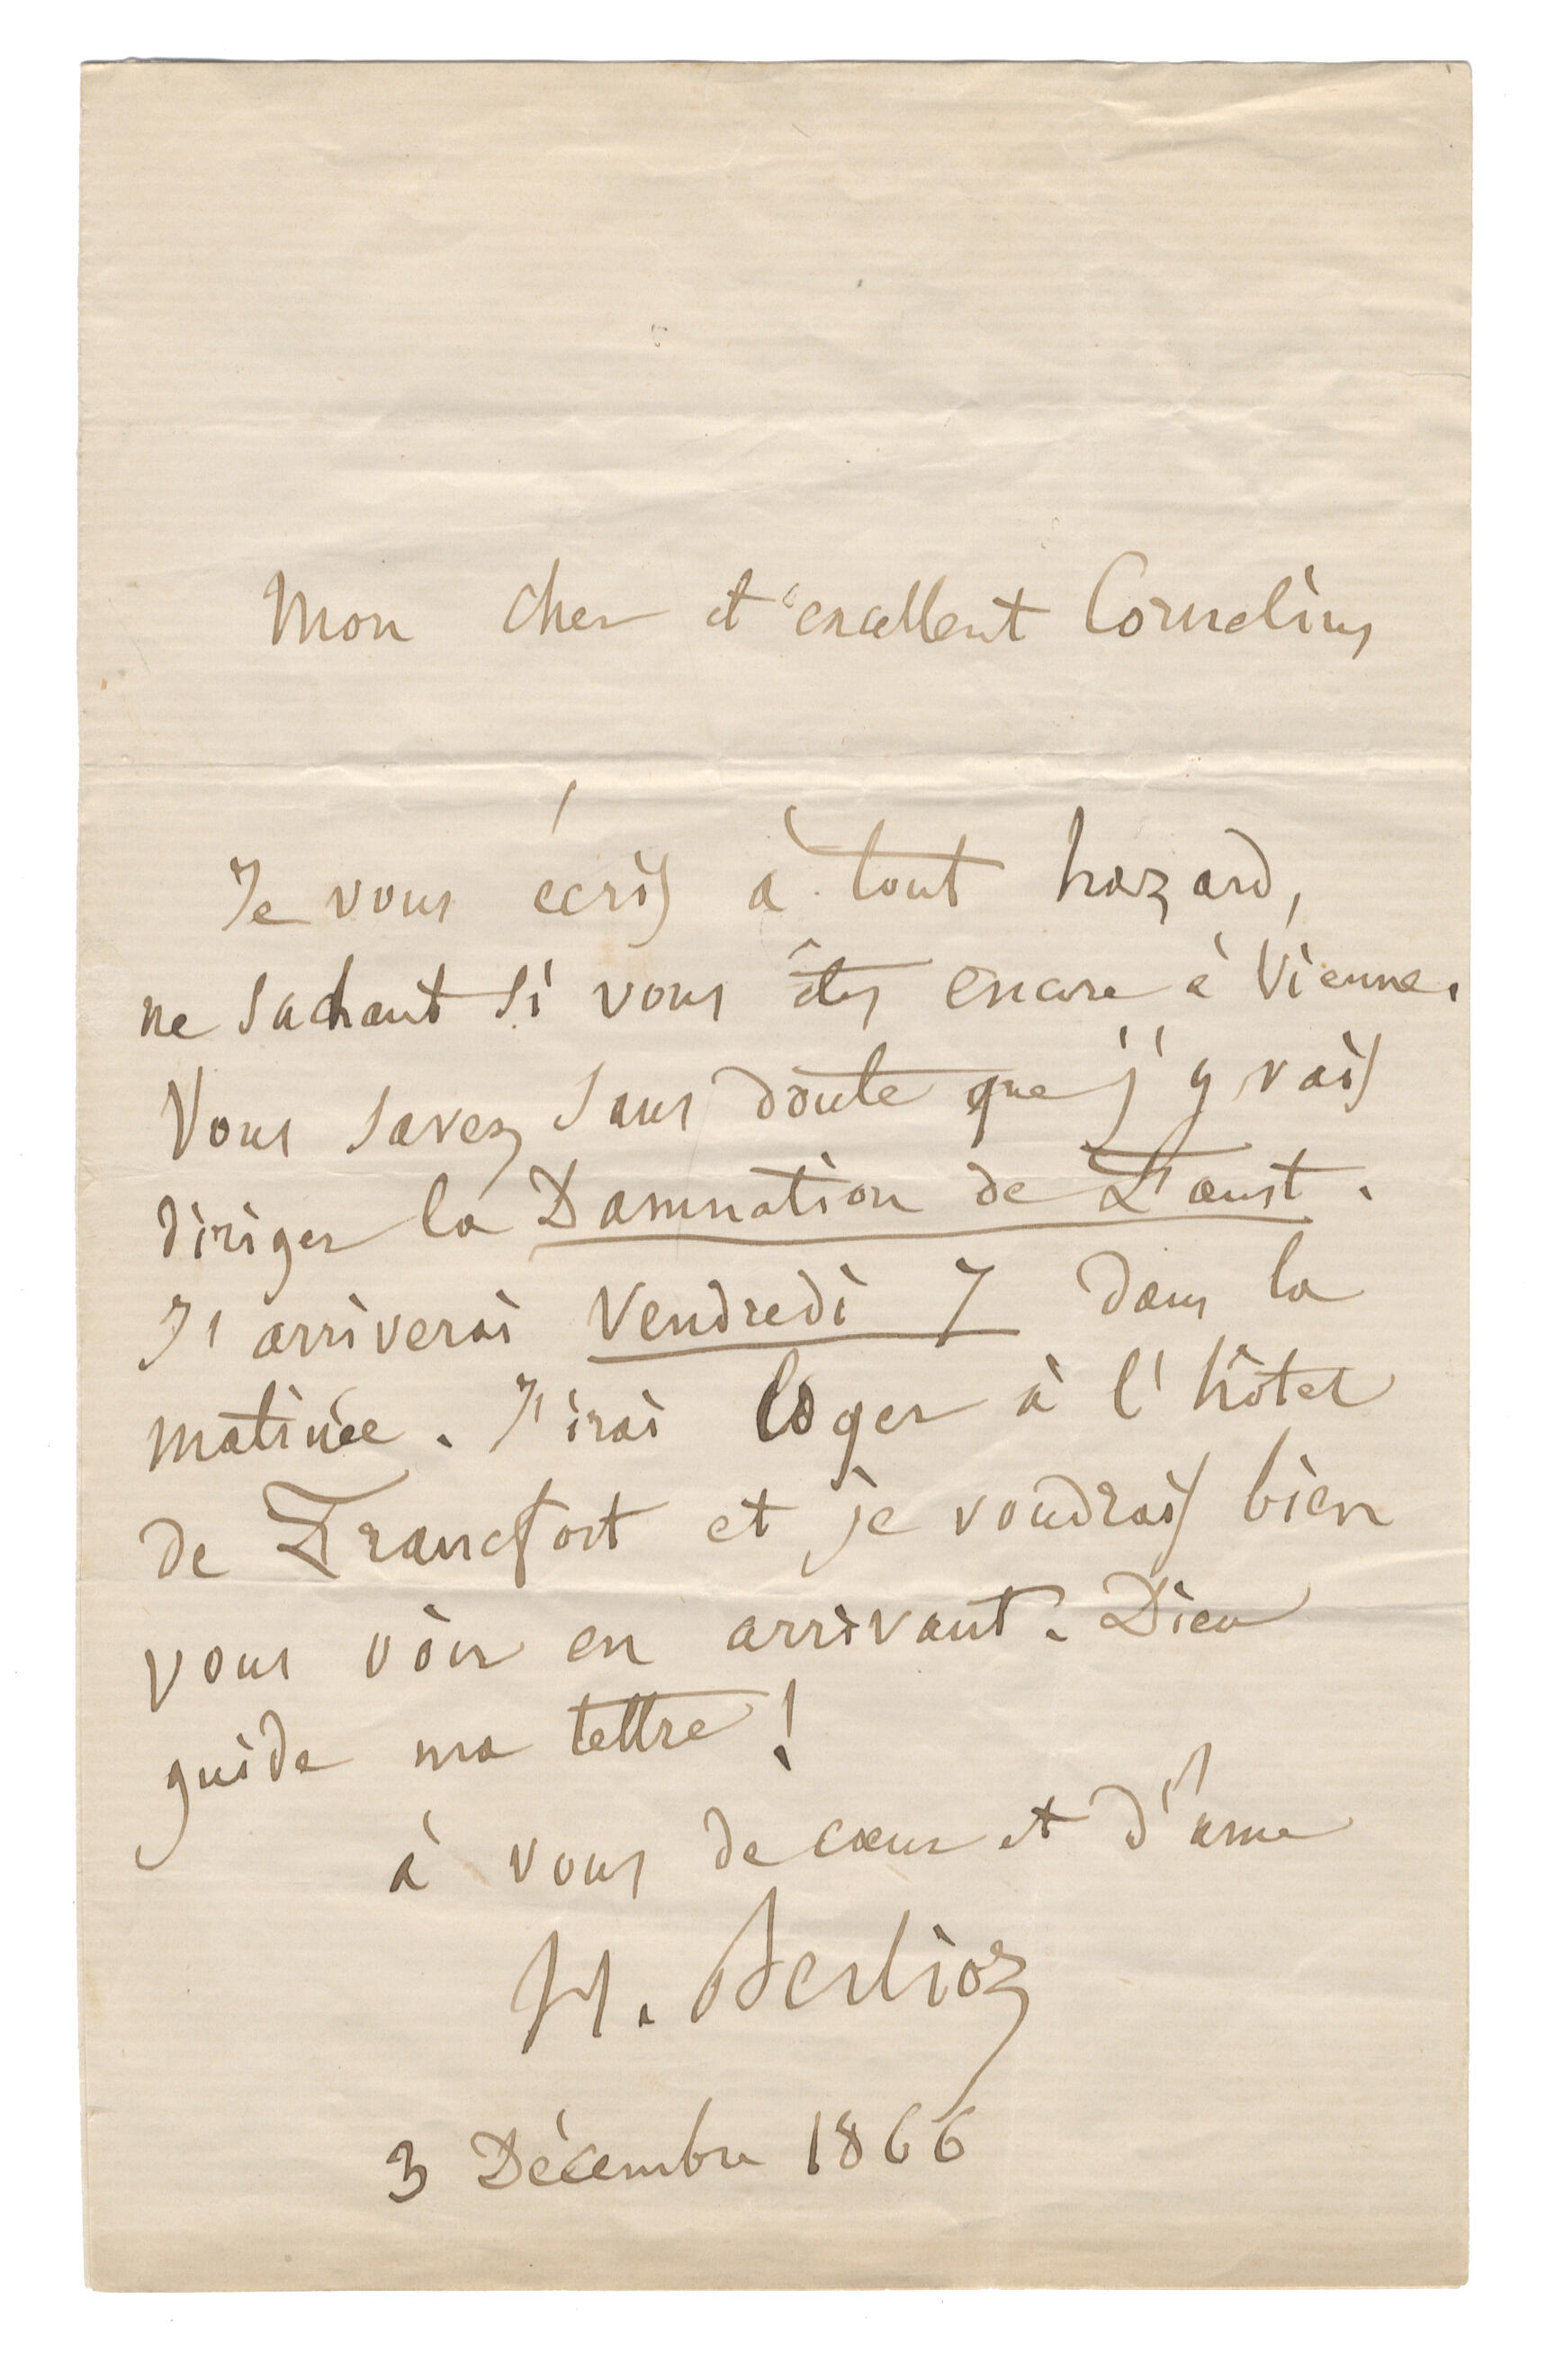 Mon cher et excellent Cornelius
Je vous écris à tout hazard,
ne sachant si vous êtes encore à Vienne.
Vous savez sans doute que j'y vais
diriger la Damnation de Faust.
J'arriverai Vendredi 7 dans la
matinée. J'irai loger à l'hôtel
de Francfort et je voudrais bien
vous voir en arrivant. Dieu
guide ma lettre!
à vous de cœur et d'âme
H. Berlioz
3 Décembre 1866